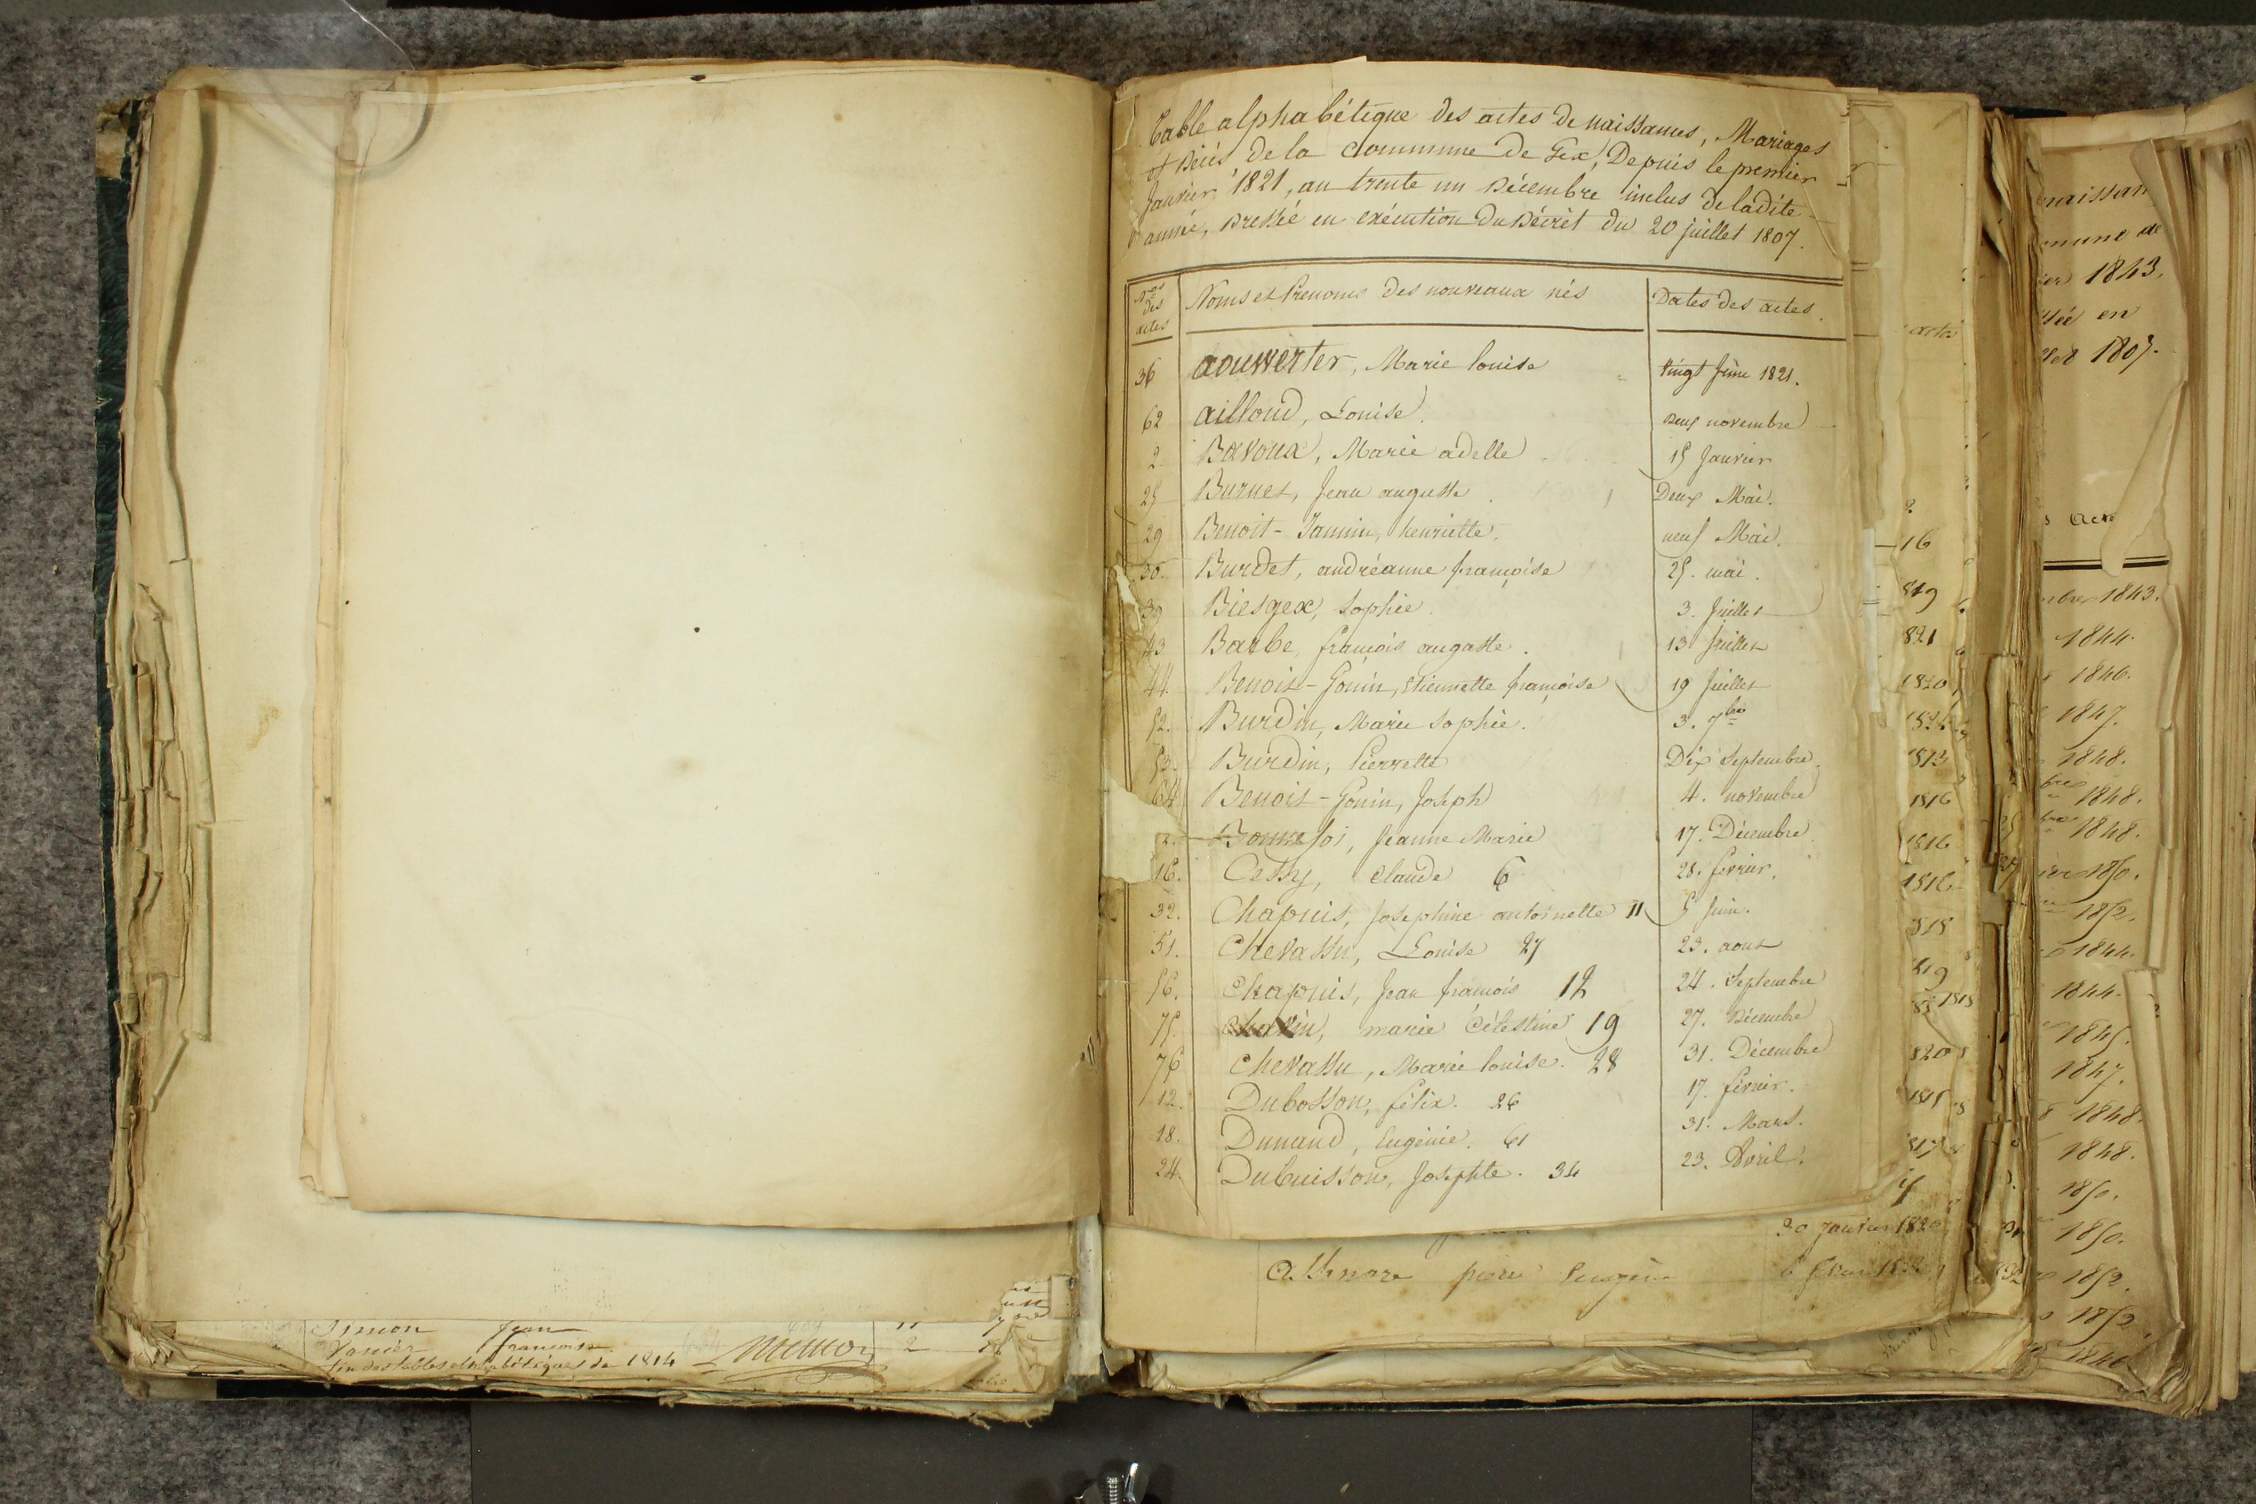 Table alphabétique des actes de naissances, Mariages
et Décès de la Commune de Gex, Depuis le premier
Janvier 1821, au trente un Décembre inclus de ladite
année, Dressé en exécution du Décrèt du 20 juillet 1807.
Nos des actes Noms et Prenoms des nouveaux nés Dates des actes.
36 aouwerter, Marie louise Vingt Juin 1821.
62 ailloud, Louise. Deux novembre
2 Bavoux, Marie adelle 15 Janvier
25 Burnet, Jean auguste. Deux Mai.
29 Benoit-Jannin, henriette. neuf Mai.
30. Burdet, andréanne françoise 25. mai.
39 Biesgex, Sophie. 3. Juillet
43 Barbe, françois auguste. 13 Juillet
44. Benoit-Gonin, Etiennette françoise 19 Juillet
52. Burdin, Marie Sophie. 3. 7bre
53. Burdin, Pierrette Dix Septembre.
64 Benoit-Gonin, Joseph 4. novembre
2. Bonnefoi, Jeanne Marie 17. Décembre
16. Cessy, Claude 6 28. fevrier.
32. Chapuis, Josephine antoinette 11 5 Juin.
51. Chevassu, Louise 27 23. aout
56. Chapuis, Jean françois 12 24. Septembre
75. Chavin, marie Célestine 19 27. Décembre
76 Chevassu, Marie louise. 28 31. Décembre
12. Dubosson, félix. 26 17. fevrier.
18. Dunand, Eugénie. 61 31. Mars.
24. Dubuisson, Josephte. 34 23. Avril.
30 Janvier 1820
Simon Jean 11
françoise 2
fin des tables alphabétiques de 1814
acte
16
819
821
1820
1813
1816
1816
1816
819
820
817
naissan
1843.
en
1807.
1843.
1844.
1846.
1847.
1848.
1848.
1848.
1850.
1852.
1844.
1844.
1845.
1847.
1848.
1848.
1850.
1850.
1852.
1852.
1846